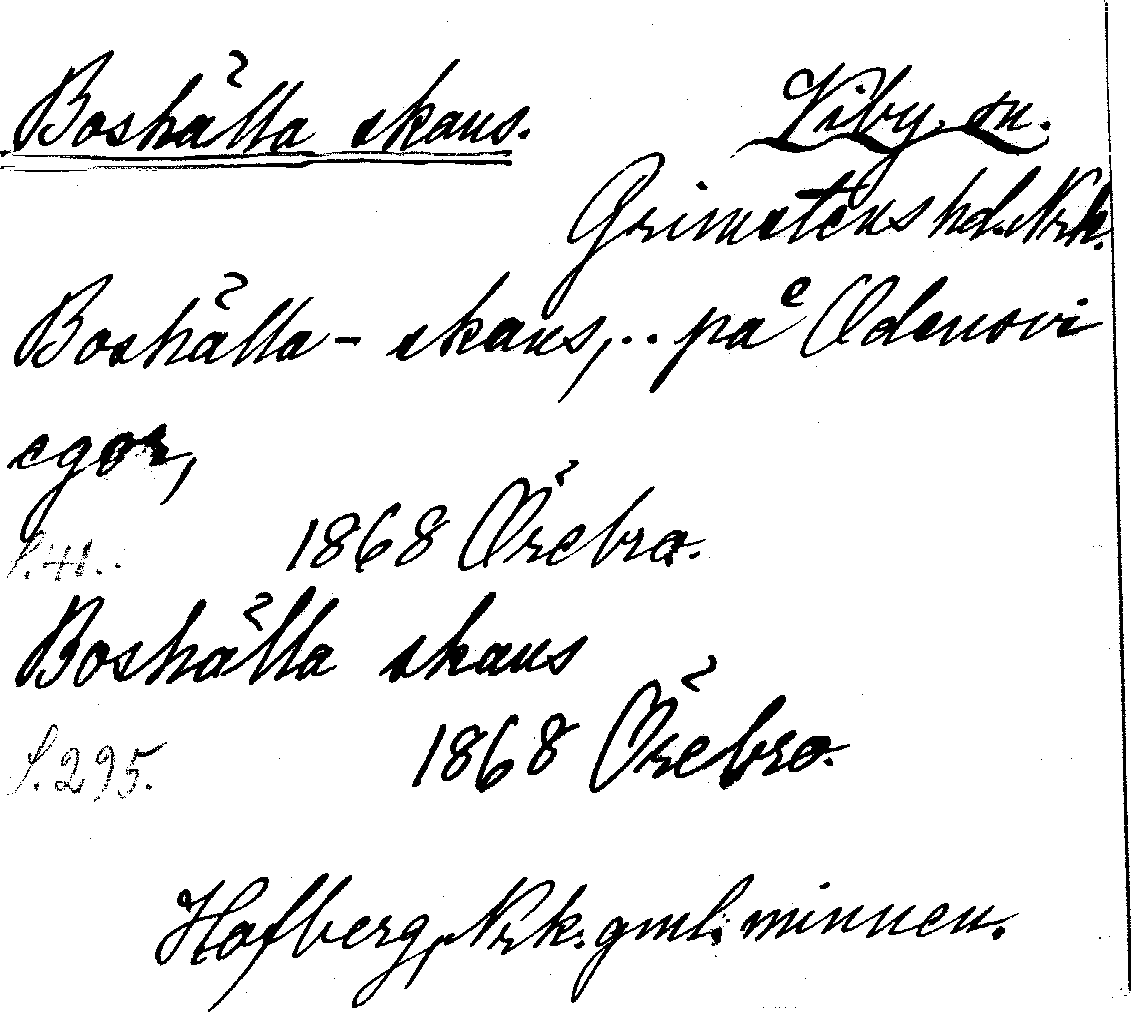 Boshälla skans. Viby sn.
Grimstens hd. Nrk.
Boshälla - skans,.. på Odensvi
egor,
S. 41.. 1868 Örebro.
Boshälla skans
S. 295. 1868 Örebro.
Hofberg, Nrk. gml. minnen.